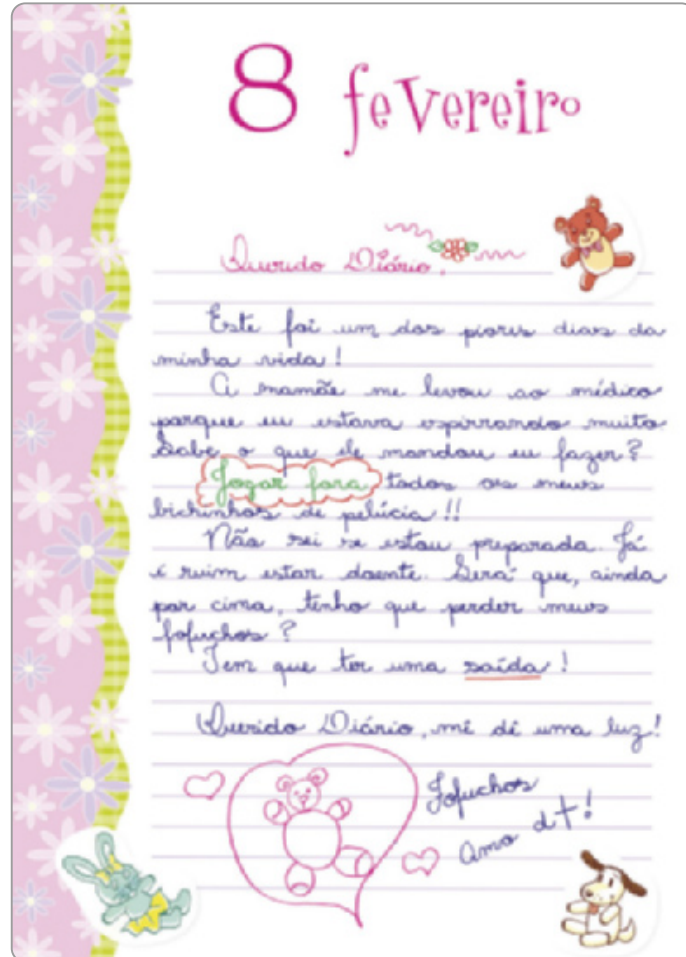 8 fevereiro
Querido Diário,
Este foi um dos piores dias da
minha vida!
A mamãe me levou ao médico
porque eu estava espirrando muito.
Sabe o que ele mandou eu fazer?
Jogar fora todos os meus
bichinhos de pelúcia!!
Não sei se estou preparada. Já
é ruim estar doente. Será que, ainda
por cima, tenho que perder meus
fofuchos?
Tem que ter uma saída!
Querido Diário, me dê uma luz!
Fofuchos
Amo d+!